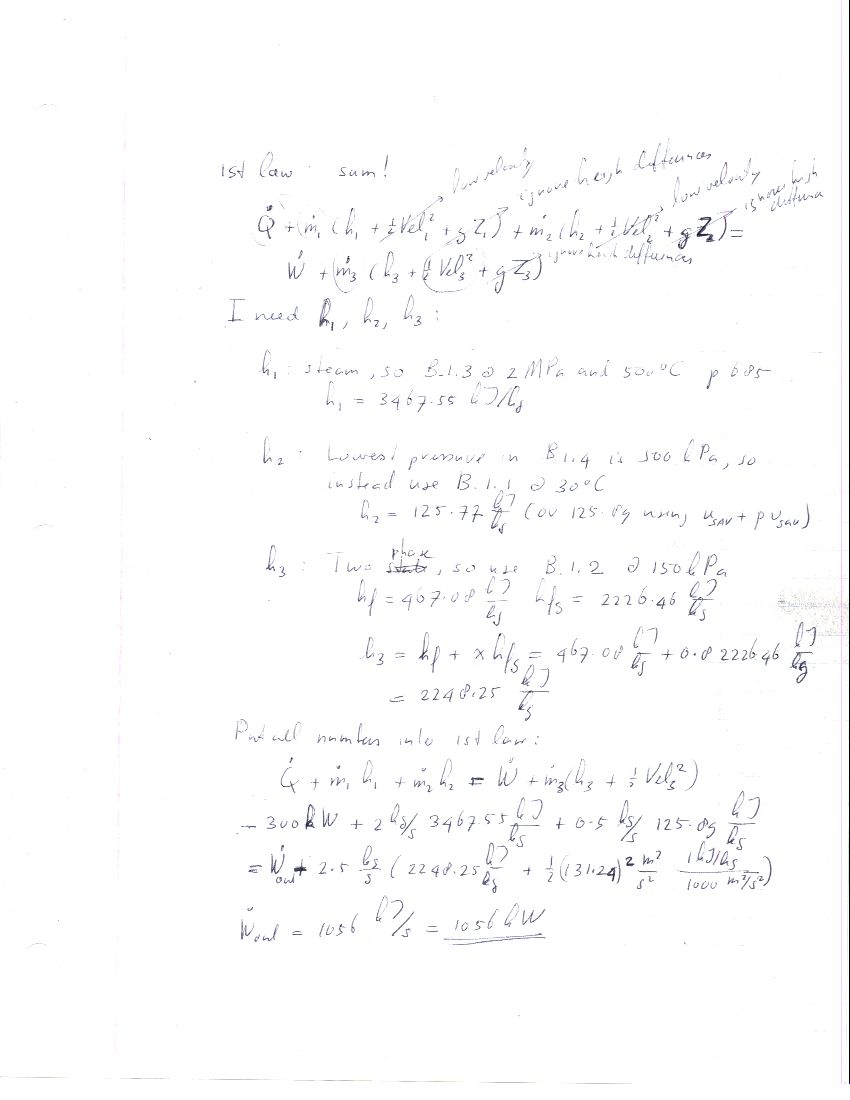 low velocity ignore heigh differences low velocity ignore heigh differences
1st law: sum!
Q̇ + (ṁ₁ (h₁ + ½Vel₁² + gZ₁) + ṁ₂ (h₂ + ½Vel₂² + gZ₂) =
Ẇ + (ṁ₃ (h₃ + ½Vel₃² + gZ₃) ignore heigh differences
I need h₁, h₂, h₃ :
h₁ : steam, so B.1.3 @ 2 MPa and 500°C p 685
h₁ = 3467.55 kJ/kg
h₂ : Lowest pressure in B.1.4 is 500 kPa, so
instead use B.1.1 @ 30°C
h₂ = 125.77 kJ/kg (or 125.89 using u_sat + p v_sat)
h₃ : Two phase, so use B.1.2 @ 150 kPa
hf = 467.08 kJ/kg hfg = 2226.46 kJ/kg
h₃ = hf + x hfg = 467.08 kJ/kg + 0.8 2226.46 kJ/kg
= 2248.25 kJ/kg
Put all numbers into 1st law:
Q̇ + ṁ₁ h₁ + ṁ₂ h₂ = Ẇ + ṁ₃(h₃ + ½ Vel₃²)
- 300 kW + 2 kg/s 3467.55 kJ/kg + 0.5 kg/s 125.89 kJ/kg
= Ẇout + 2.5 kg/s (2248.25 kJ/kg + ½ (131.24)² m²/s² 1 kJ/kg / 1000 m²/s²)
Ẇout = 1056 kJ/s = 1056 kW